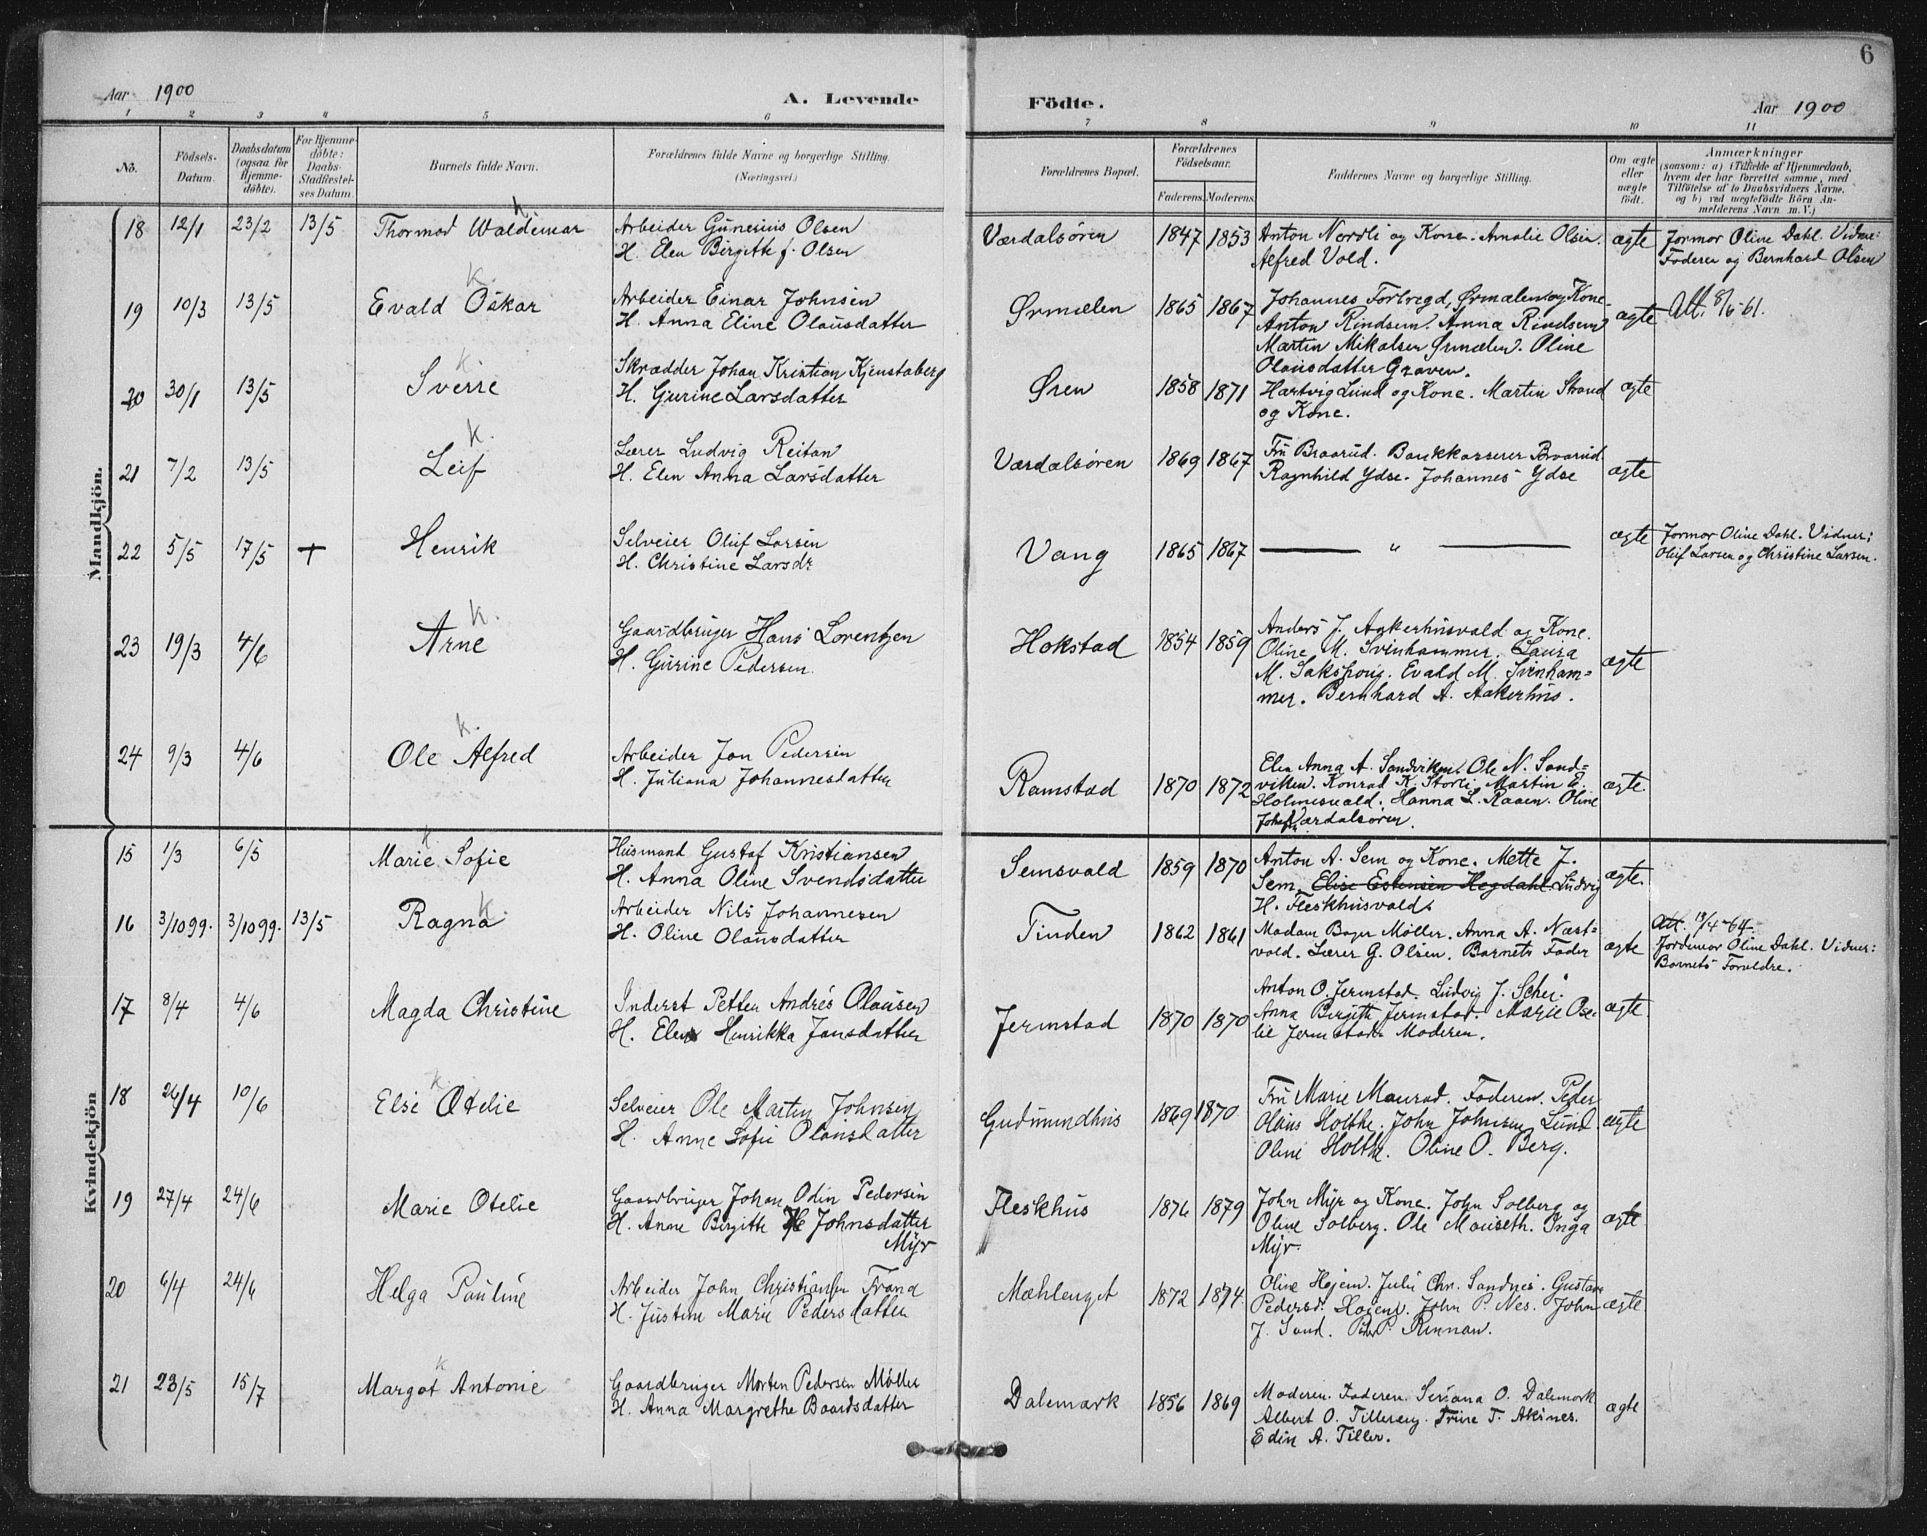 6
Aar 1900
A. Levende
Födte.
Aar 1900
1 2 3 4 5 6 7 8 9 10 11
No.
Födsels-
Datum.
Daabsdatum
(ogsaa for
Hjemme-
döbte).
For Hjemme-
döbte:
Daabs-
Stadfæstel-
ses Datum.
Barnets fulde Navn.
Forældrenes fulde Navne og borgerlige Stilling.
(Næringsvei.)
Forældrenes Bopæl.
Forældrenes
Födselsaar.
Faderens. Moderens.
Faddernes Navne og borgerlige Stilling.
Om ægte
eller
uægte
födt.
Anmærkninger
(saasom: a) i Tilfælde af Hjemmedaab,
hvem der har forrettet samme, med
Tilföielse af to Daabsvidners Navne,
og b) ved uægtefödte Börn An-
melderens Navn m. V.)
Mandkjön.
18 12/1 23/2 13/5 Thormod Waldemar k
Arbeider Gunerius Olsen
H. Elen Birgitte f. Olsen
Værdalsören 1847 1853
Anton Nordli og Kone. Amalie Olsen.
Alfred Vold.
ægte
Jormor Oline Dahl. Vidne:
Faderen og Bernhard Olsen
19 10/3 13/5 Evald Oskar k.
Arbeider Einar Johnsen
H. Anna Eline Olausdatter
Ørmelen 1865 1867
Johannes Forbregd, Ørmelen og Kone.
Anton Rindsem. Anna Rindsem
Martin Mikalsen Ørmelen. Oline
Olausdatter Graven.
ægte
Att. 8/6-61.
20 30/1 13/5 Sverre k
Skrædder Johan Kristian Kjenstaberg
H. Gurine Larsdatter
Ören 1858 1871
Hartvig Lund og Kone. Martin Strand
og Kone.
ægte
21 7/2 13/5 Leif k.
Lærer Ludvig Reitan
H. Elen Anna Larsdatter
Værdalsören 1869 1867
Fru Braarud. Bankkasserer Braarud
Ragnhild Ydse. Johannes Ydse
ægte
22 5/5 17/5 + Henrik
Selveier Oluf Larsen
H. Christine Larsdr
Vang 1865 1867
— " —
ægte
Jormor Oline Dahl. Vidner:
Oluf Larsen og Christine Larsen.
23 19/3 4/6 Arne k.
Gaardbruger Hans Lorentzen
H. Gurine Pedersen
Hokstad 1854 1859
Anders J. Aakerhusvald og Kone.
Oline M. Svinhammer. Laura
M. Evald M. Svinham=
mer. Bernhard A. Aakerhus.
ægte
24 9/3 4/6 Ole Alfred k.
Arbeider Jon Pedersen
H. Juliana Johannesdatter
Ramstad 1870 1872
Elen Anna A. Sandviken. Ole N. Sand=
viken. Konrad K. Storli. Martin
Holmsvald. Hanna L. Raaen. Oline
Værdalsören.
ægte.
Kvindekjön
15 1/3 6/5 Marie Sofie k
Husmand Gustaf Kristiansen
H. Anna Oline Svendsdatter
Semsvald 1859 1870
Anton A. Sem og Kone. Mette J.
Sem. Elise Estensen Hegdahl. Ludvig
H. Fleskhusvald.
ægte.
16 3/10 99. 3/10 99. 13/5 Ragna k.
Arbeider Nils Johannesen
H. Oline Olausdatter
Tinden 1862 1861
Madam Bager Möller. Anna A. Næst=
vold. Lærer G. Olsen. Barnets Fader
ægte
Att. 13/4-64.
Jordmor Oline Dahl. Vidner:
Barnets Forældre.
17 8/4 4/6 Magda Christine
Inderst Petter Andrés Olausen
H. Elen Henrikka Jansdatter
Jermstad 1870 1870
Anton O. Jermstad. Ludvig J. Schei
Anna Birgitte Jermstad. Marie Ose-
lie Jermstad. Moderen.
ægte.
18 26/4 10/6 Else Otelie k
Selveier Ole Martin Johnsen
H. Anne Sofie Olausdatter
Gudmundhus 1869 1870
Fru Marie Maurad. Faderen. Peder
Olaus Holthe. John Johnsen Lund
Oline Holthe. Oline O. Berg.
ægte
19 27/4 24/6 Marie Otelie
Gaardbruger Johan Odin Pedersen
H. Anne Birgitte Johnsdatter
Myr
Fleskhus 1876 1879
John Myr og Kone. John Solberg og
Oline Solberg. Ole Mauseth. Inga
Myr.
ægte
20 6/4 24/6 Helga Pauline
Arbeider John Christiansen Trana
H. Justine Marie Pedersdatter
Mæhlenget 1872 1874.
Oline Hojem. Julie Chr. Sandnes. Gustav
Pedersd. Hojem. John P. Nes. John
J. Sund. Peder P. Rinnan.
ægte
21 23/5 15/7 Margot Antonie k
Gaardbruger Morten Pedersen Möller
H. Anna Margrethe Baardsdatter
Dalemark 1856 1869
Moderen. Faderen. Seriana O. Dalemark
Albert O. Tillereng. Trine T. Aksnes.
Edin A. Tiller.
ægte